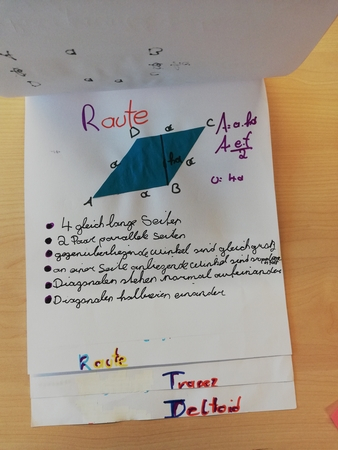 Raute
D a C
A = a·ha
A = ef/2
a ha a
u = 4a
A a B
• 4 gleich lange Seiten
• 2 Paar parallele Seiten
• gegenüberliegende Winkel sind gleich groß
• an einer Seite anliegende Winkel sind supplementär
• Diagonalen stehen normal aufeinander
• Diagonalen halbieren einander
Raute
Trapez
Deltoid